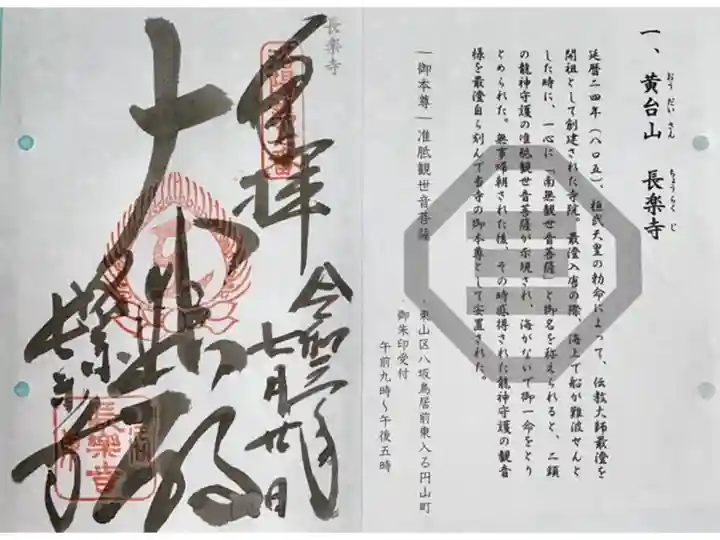 一、黄台山 長楽寺
おうだいさん ちょうらくじ
延暦二四年（八〇五）、桓武天皇の勅命によって、伝教大師最澄を
開祖として創建された寺院。最澄入唐の際、海上で船が難波せんと
した時に、一心に「南無観世音菩薩」と御名を称えられると、二鎖
の龍神守護の准胝観世音菩薩が示現され、海がないで御一命をとり
とめられた。無事帰朝された後、その時感得された龍神守護の観音
様を最澄自ら刻んで当寺の御本尊として安置された。
―御本尊―准胝観世音菩薩
・東山区八坂鳥居前東入る円山町
・御朱印受付
午前九時～午後五時
長楽寺
奉拝
令和三年
七月廿日
大悲殿
長楽寺
長樂寺